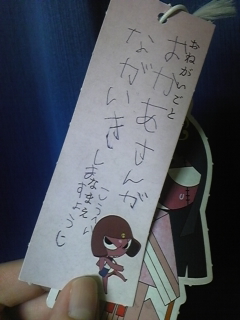 おねがいごと
おかあさんが
ながいきし
ますように
なまえ
こうへい